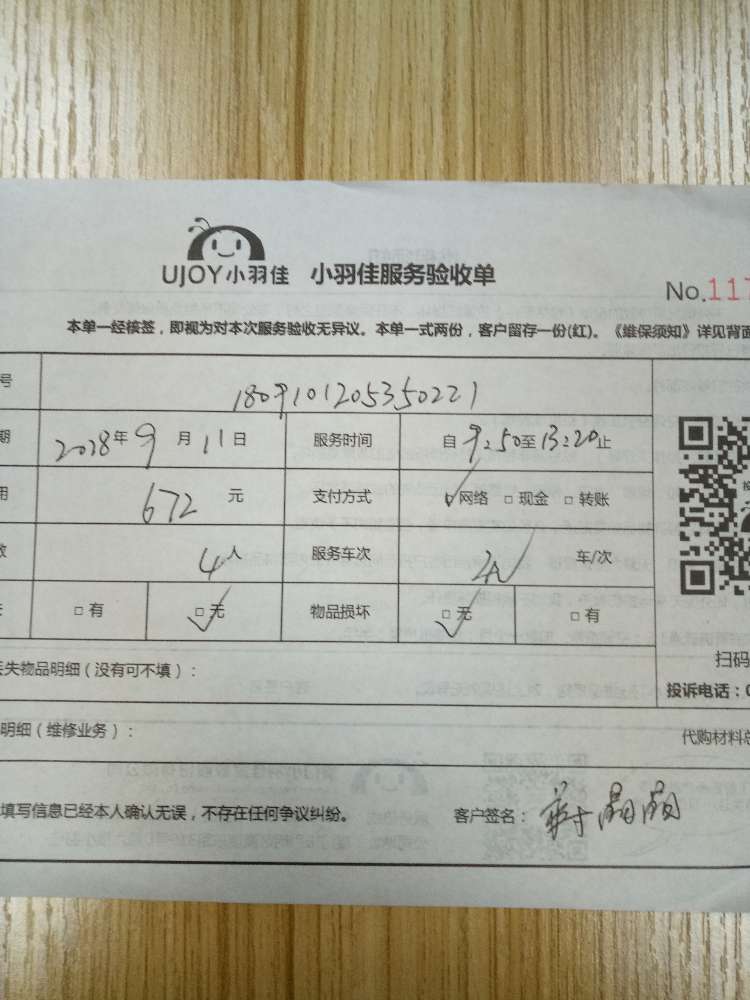 UJOY小羽佳 小羽佳服务验收单
No.117
本单一经核签，即视为对本次服务验收无异议。本单一式两份，客户留存一份(红)。《维保须知》详见背面
号 1809101205350221
期 2018年9月11日 服务时间 自9:50至13:20止
用 672元 支付方式 网络 □现金 □转账
数 4人 服务车次 车/次
□有 □无 物品损坏 □无 □有
扫码
丢失物品明细（没有可不填）：
投诉电话：0
明细（维修业务）：
代购材料总
填写信息已经本人确认无误，不存在任何争议纠纷。 客户签名：